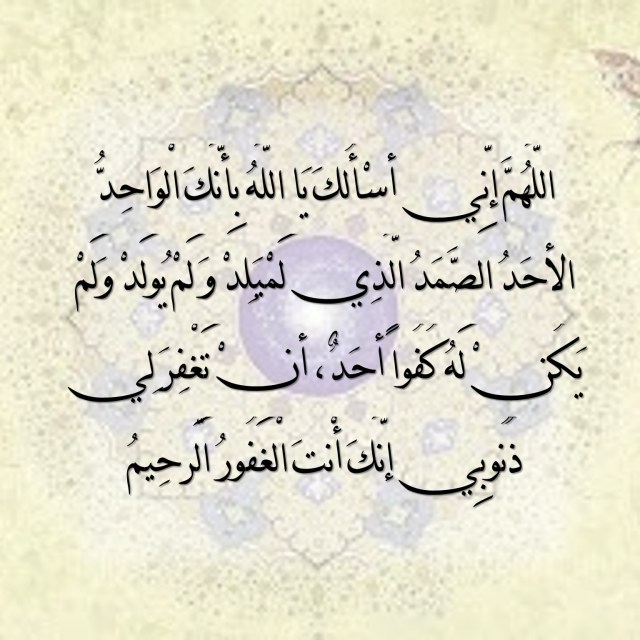 اللَّهُمَّ إِنِّي أَسْأَلُكَ يَا اللَّهُ بِأَنَّكَ الْوَاحِدُ
الأَحَدُ الصَّمَدُ الَّذِي لَمْ يَلِدْ وَلَمْ يُولَدْ وَلَمْ
يَكُنْ لَهُ كُفُواً أَحَدٌ، أَنْ تَغْفِرَ لِي
ذُنُوبِي إِنَّكَ أَنْتَ الْغَفُورُ الرَّحِيمُ